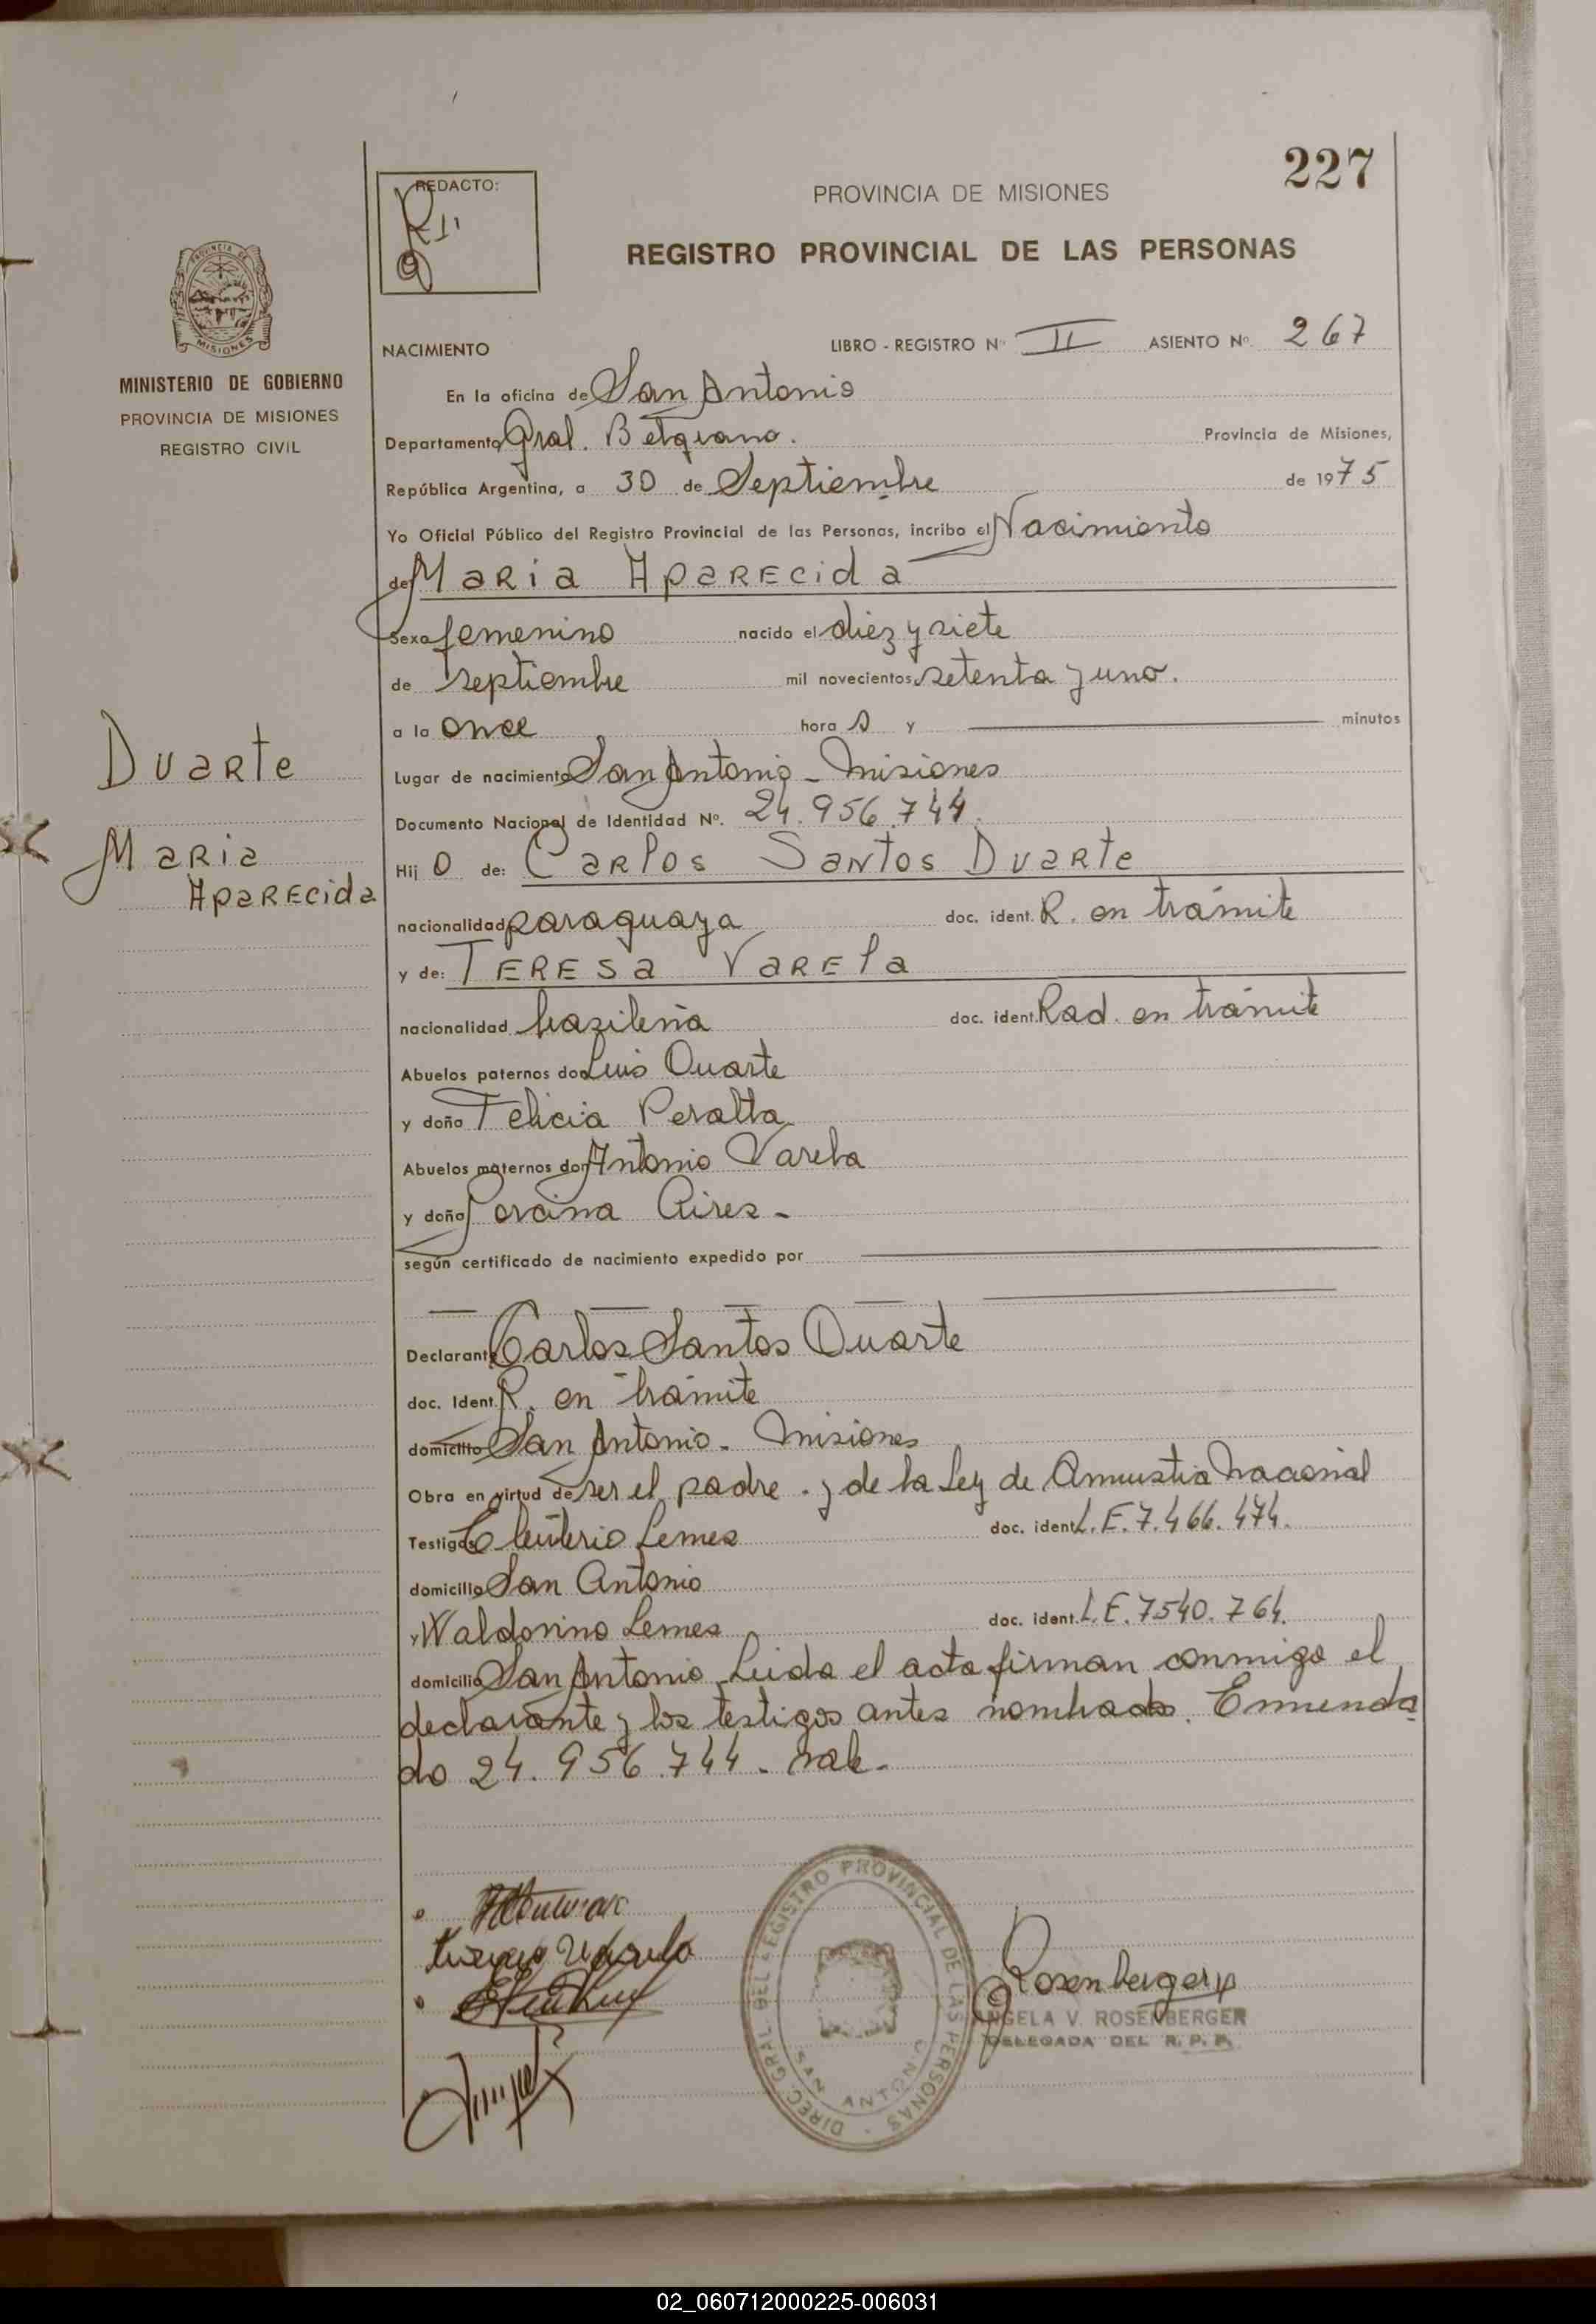 227
REDACTO:
PROVINCIA DE MISIONES
REGISTRO PROVINCIAL DE LAS PERSONAS
PROVINCIA DE MISIONES
MINISTERIO DE GOBIERNO
PROVINCIA DE MISIONES
REGISTRO CIVIL
NACIMIENTO LIBRO - REGISTRO Nº II ASIENTO Nº 267
En la oficina de San Antonio
Departamento Gral. Belgrano. Provincia de Misiones,
República Argentina, a 30 de Septiembre de 1975
Yo Oficial Público del Registro Provincial de las Personas, incribo el Nacimiento
de Maria Aparecida
Sexo femenino nacido el diez y siete
de septiembre mil novecientos setenta y uno.
a la once hora s y minutos
Duarte
Lugar de nacimiento San Antonio - Misiones
Documento Nacional de Identidad Nº. 24.956.744.
Maria
Aparecida
Hij o de: Carlos Santos Duarte
nacionalidad paraguaya doc. ident. R. en trámite
y de: Teresa Varela
nacionalidad brasileña doc. ident. Rad. en trámite
Abuelos paternos don Luis Duarte
y doña Felicia Peralta
Abuelos maternos don Antonio Varela
y doña Porcina Aires -
según certificado de nacimiento expedido por
Declarante Carlos Santos Duarte
doc. Ident. R. en trámite
domicilio San Antonio - Misiones
Obra en virtud de ser el padre . y de la Ley de Amnistia Nacional
Testigos Eleuterio Lemes doc. ident. L.E. 7.466.474.
domicilio San Antonio
y Waldovino Lemes doc. ident. L.E. 7540.764.
domicilio San Antonio Leida el acta firman conmigo el
declarante y los testigos antes nombrados. Enmenda
do 24.956.744 - vale -
DIREC. GRAL. DEL REGISTRO PROVINCIAL DE LAS PERSONAS
SAN ANTONIO
Rosenberger
ANGELA V. ROSENBERGER
DELEGADA DEL R. P. P.
02_060712000225-006031